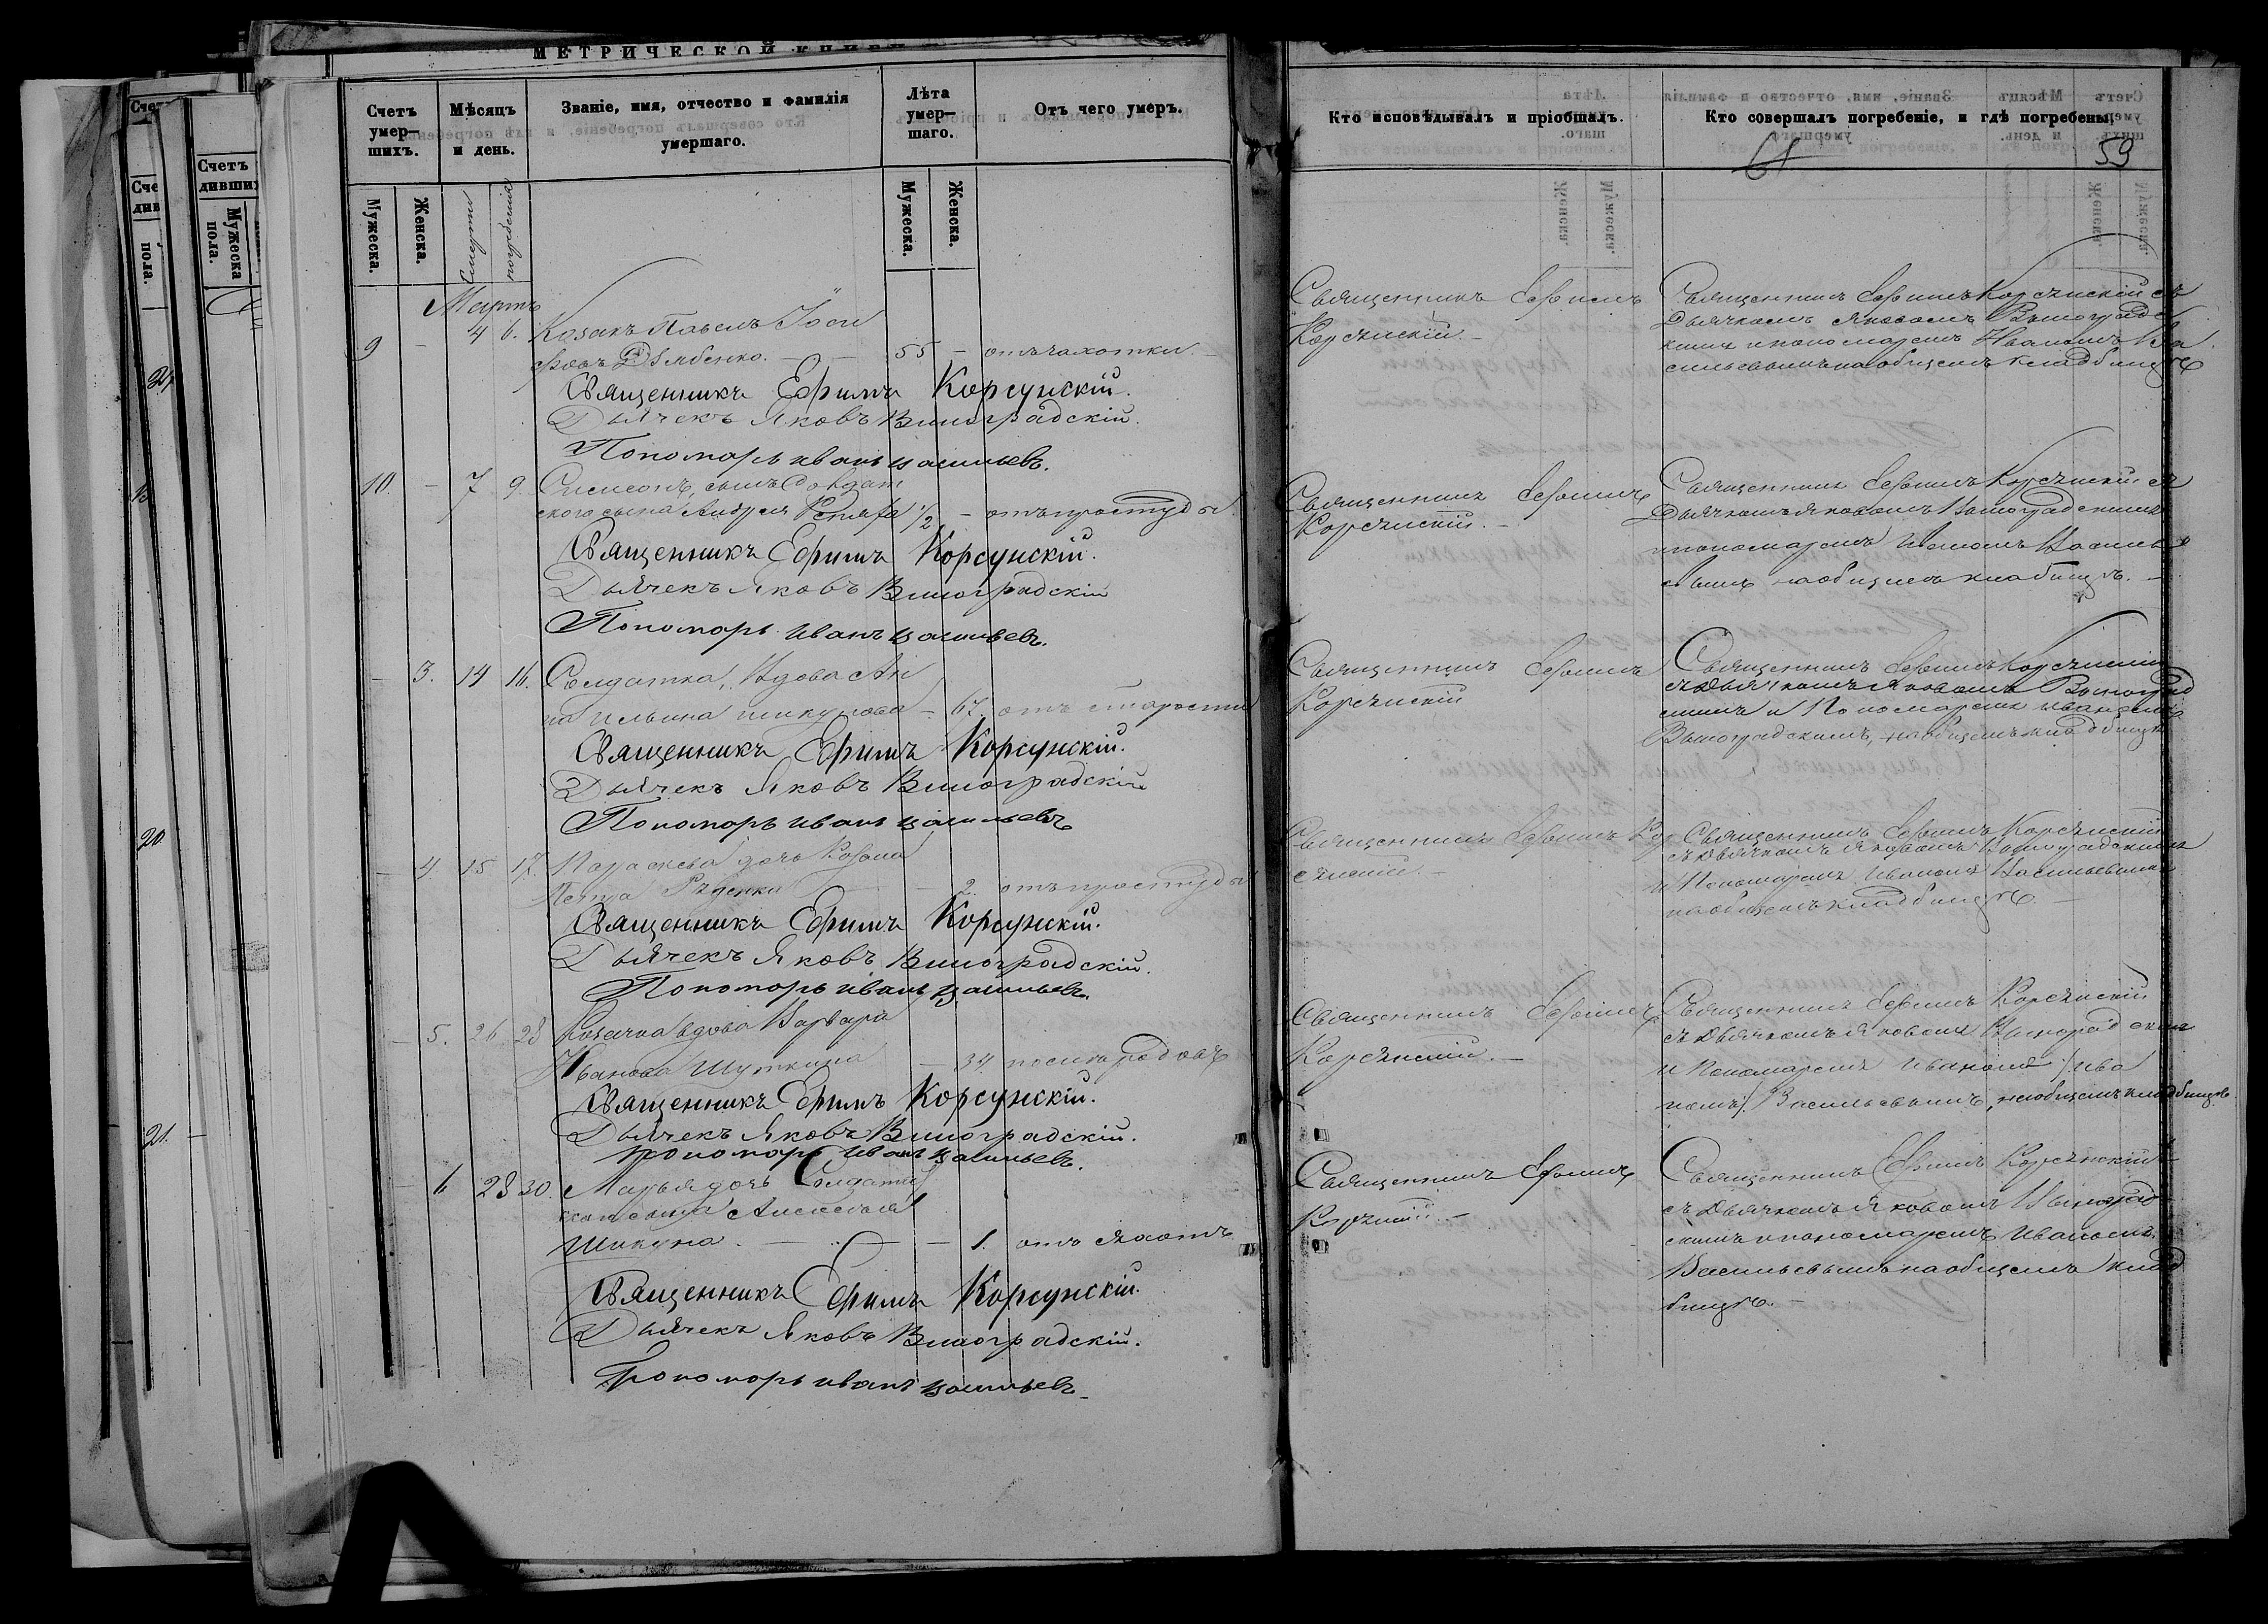 МЕТРИЧЕСКОЙ КНИГИ
Счетъ умер-шихъ.
Мѣсяцъ и день.
Званіе, имя, отчество и фамилія умершаго.
Лѣта умер-шаго.
Отъ чего умеръ.
Мужеска.
Женска.
Смерти
погребенія
Мужеска.
Женска.
Мартъ
9 - 4 6. Козакъ Павелъ Іоси
фовъ - 55 - отъ чахотки.
Священникъ Ефимъ Корсунскій.
Дьячекъ Яковъ Виноградскій.
Пономарь иванъ васильевъ.
10. - 7 9. Симеонъ, сынъ Солдат
скаго сына Андрея 1/2 - отъ простуды.
Священникъ Ефимъ Корсунскій.
Дьячекъ Яковъ Виноградскій
Пономарь иванъ васильевъ.
- 3. 14 16. Солдатка, Вдова Ан
на Ильина - 67. отъ старости
Священникъ Ефимъ Корсунскій.
Дьячекъ Яковъ Виноградскій
Пономарь иванъ васильевъ
- 4. 15 17. Параскева дочь Козака
Петра - 2. отъ простуды
Священникъ Ефимъ Корсунскій.
Дьячекъ Яковъ Виноградскій.
Пономарь иванъ васильевъ.
- 5. 26 28 Козачка вдова Варвара
Иванова - 34. после родовъ
Священникъ Ефимъ Корсунскій.
Дьячекъ Яковъ Виноградскій.
Пономарь иванъ васильевъ.
- 6 28 30. Марья дочь Солдат
скаго сына Алексея
Шикуна. - 1. отъ
Священникъ Ефимъ Корсунскій.
Дьячекъ Яковъ Виноградскій.
Пономарь иванъ васильевъ.
Кто исповѣдывалъ и пріобщалъ.
Кто совершалъ погребеніе, и гдѣ погребены.
61
59
Священникъ Ефимъ
Корсунскій.-
Священникъ Ефимъ Корсунскій съ
Дьячкомъ Яковомъ Виноградс
кимъ и пономаремъ Иваномъ Ва
сильевымъ на общемъ кладбищѣ
Священникъ Ефимъ
Корсунскій.-
Священникъ Ефимъ Корсунскій съ
Дьячкомъ Яковомъ Виноградскимъ
и пономаремъ Иваномъ Василь
евымъ на общемъ клабищѣ.-
Священникъ Ефимъ
Корсунскій
Священникъ Ефимъ Корсунскій
съ Дьячкомъ Яковомъ Виноград
скимъ и Пономаремъ Иваномъ
Виноградскимъ, на общемъ кладбищѣ
Священникъ Ефимъ Кор
сунскій.-
Священникъ Ефимъ Корсунскій
съ Дьячкомъ Яковомъ Виноградскимъ
и Пономаремъ Иваномъ Васильевымъ
на общемъ кладбищѣ -
Священникъ Ефимъ
Корсунскій.-
Священникъ Ефимъ Корсунскій
съ Дьячкомъ Яковомъ Виноградскимъ
и Пономаремъ Иваномъ /ива
номъ/. Васильевымъ, на общемъ кладбищѣ
Священникъ Ефимъ
Корсунскій.-
Священникъ Ефимъ Корсунскій
съ Дьячкомъ Яковомъ Виноград
скимъ и пономаремъ Иваномъ
Васильевымъ на общемъ клад
бищѣ.-
Счетъ дивши
Мужеска пола.
Сче див
пола.
20.
21.